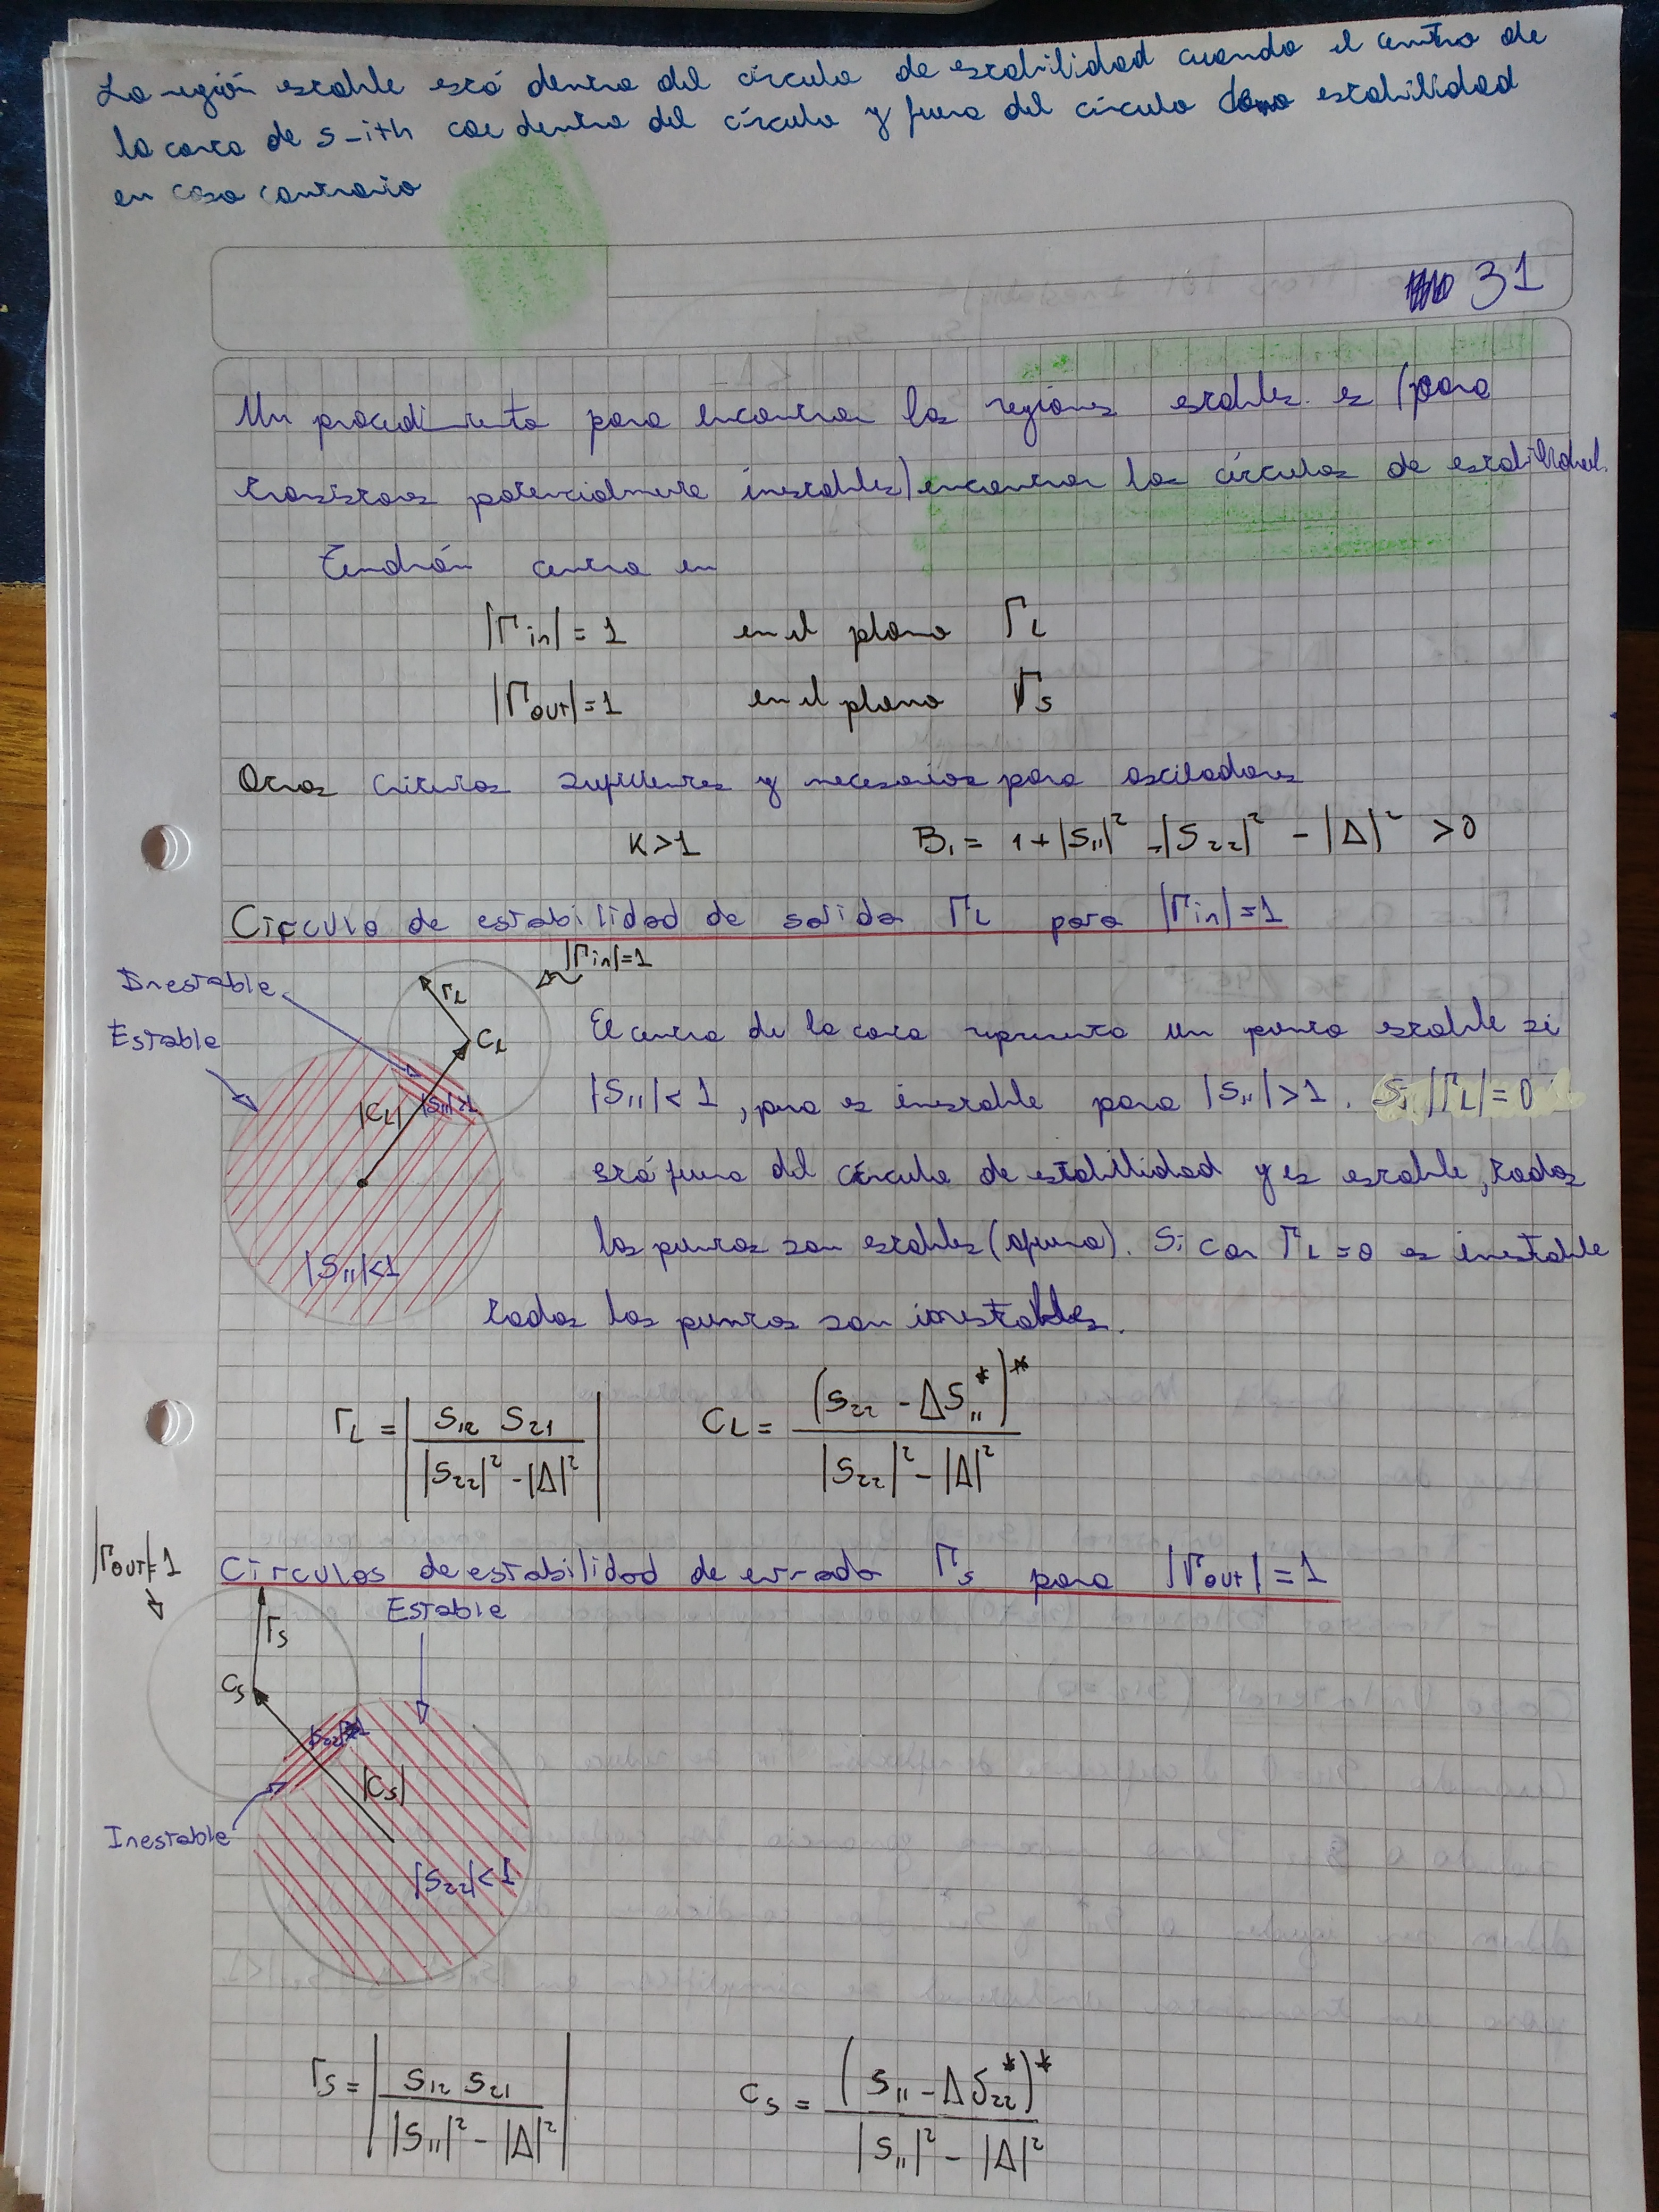 La región estable está dentro del círculo de estabilidad cuando el centro de
la carta de smith cae dentro del círculo y fuera del círculo de estabilidad
en caso contrario
31
Un procedimiento para encontrar las regiones estables es (para
transistores potencialmente inestables) encontrar los círculos de estabilidad.
Tendrán centro en
|Γin| = 1 en el plano ΓL
|Γout| = 1 en el plano Γs
Otros criterios suficientes y necesarios para osciladores
K>1 B₁ = 1+|S₁₁|² - |S₂₂|² - |Δ|² > 0
Círculo de estabilidad de salida ΓL para |Γin| = 1
|Γin|=1
Inestable
rL
Estable
CL
|CL|
|S₁₁|>1
|S₁₁|<1
El centro de la carta representa un punto estable si
|S₁₁| < 1, pero es inestable para |S₁₁| > 1. Si |ΓL| = 0
está fuera del círculo de estabilidad y es estable, todos
los puntos son estables (afuera). Si con ΓL = 0 es inestable
todos los puntos son inestables.
rL = | S₁₂ S₂₁ / |S₂₂|² - |Δ|² | CL = (S₂₂ - ΔS₁₁*)* / |S₂₂|² - |Δ|²
|Γout|=1
Círculos de estabilidad de entrada Γs para |Γout| = 1
Estable
rs
Cs
|S₂₂|>1
|Cs|
Inestable
|S₂₂|<1
rs = | S₁₂ S₂₁ / |S₁₁|² - |Δ|² | Cs = (S₁₁ - ΔS₂₂*)* / |S₁₁|² - |Δ|²